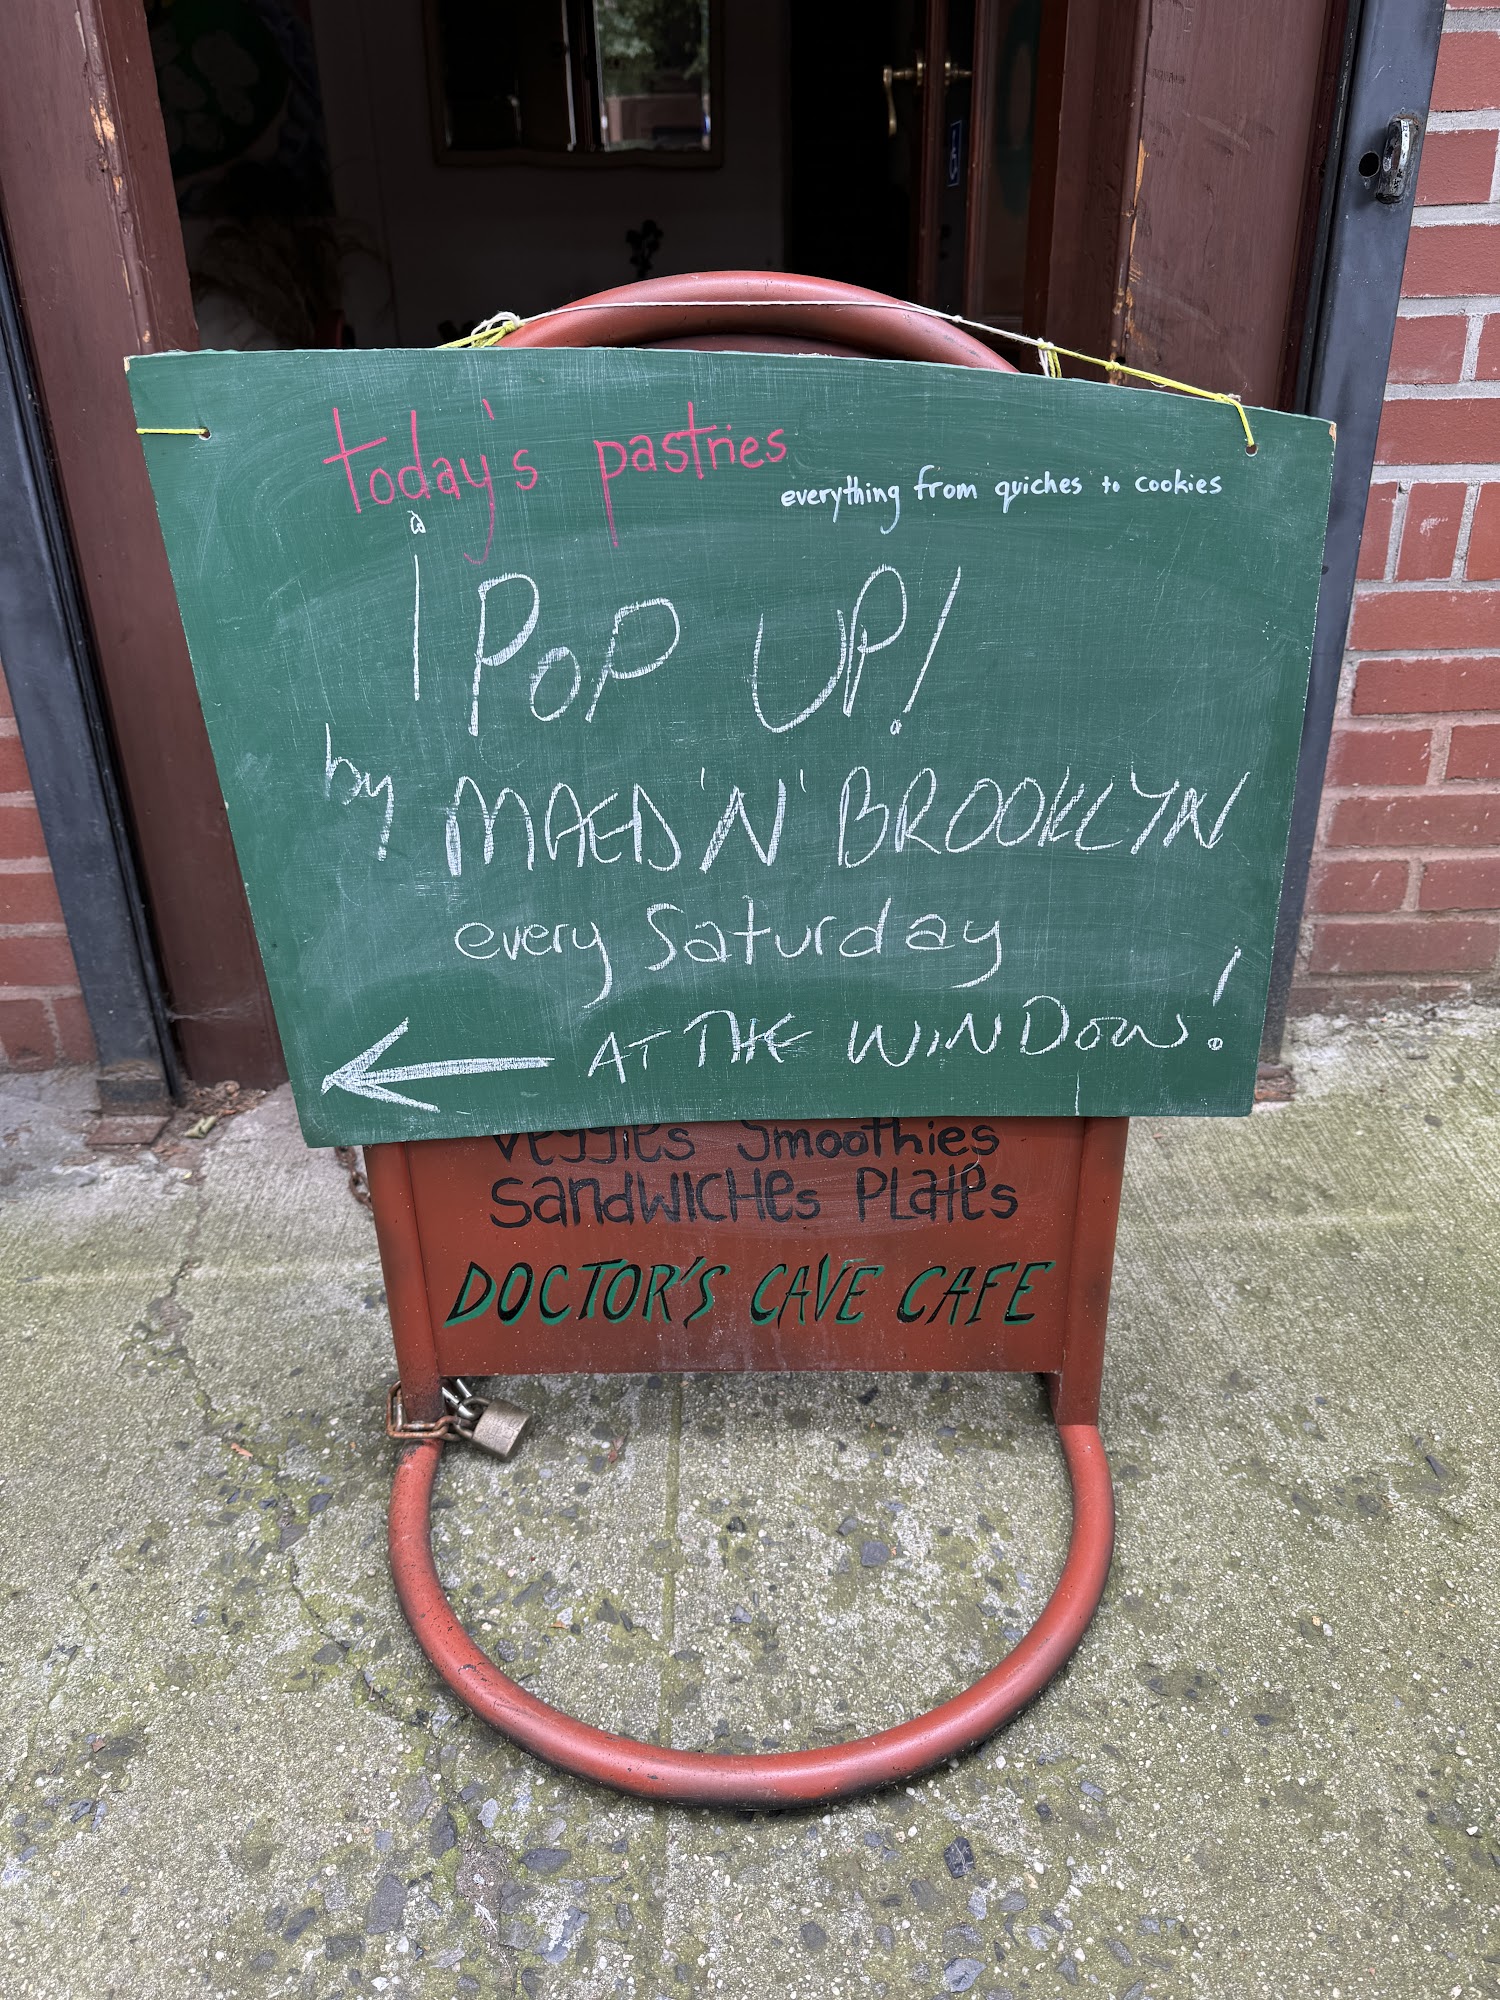 today's pastries
everything from quiches to cookies
¡ POP UP!
by MAED 'N' BROOKLYN
every Saturday
AT THE WINDOW!
Veggies Smoothies
Sandwiches Plates
DOCTOR'S CAVE CAFE